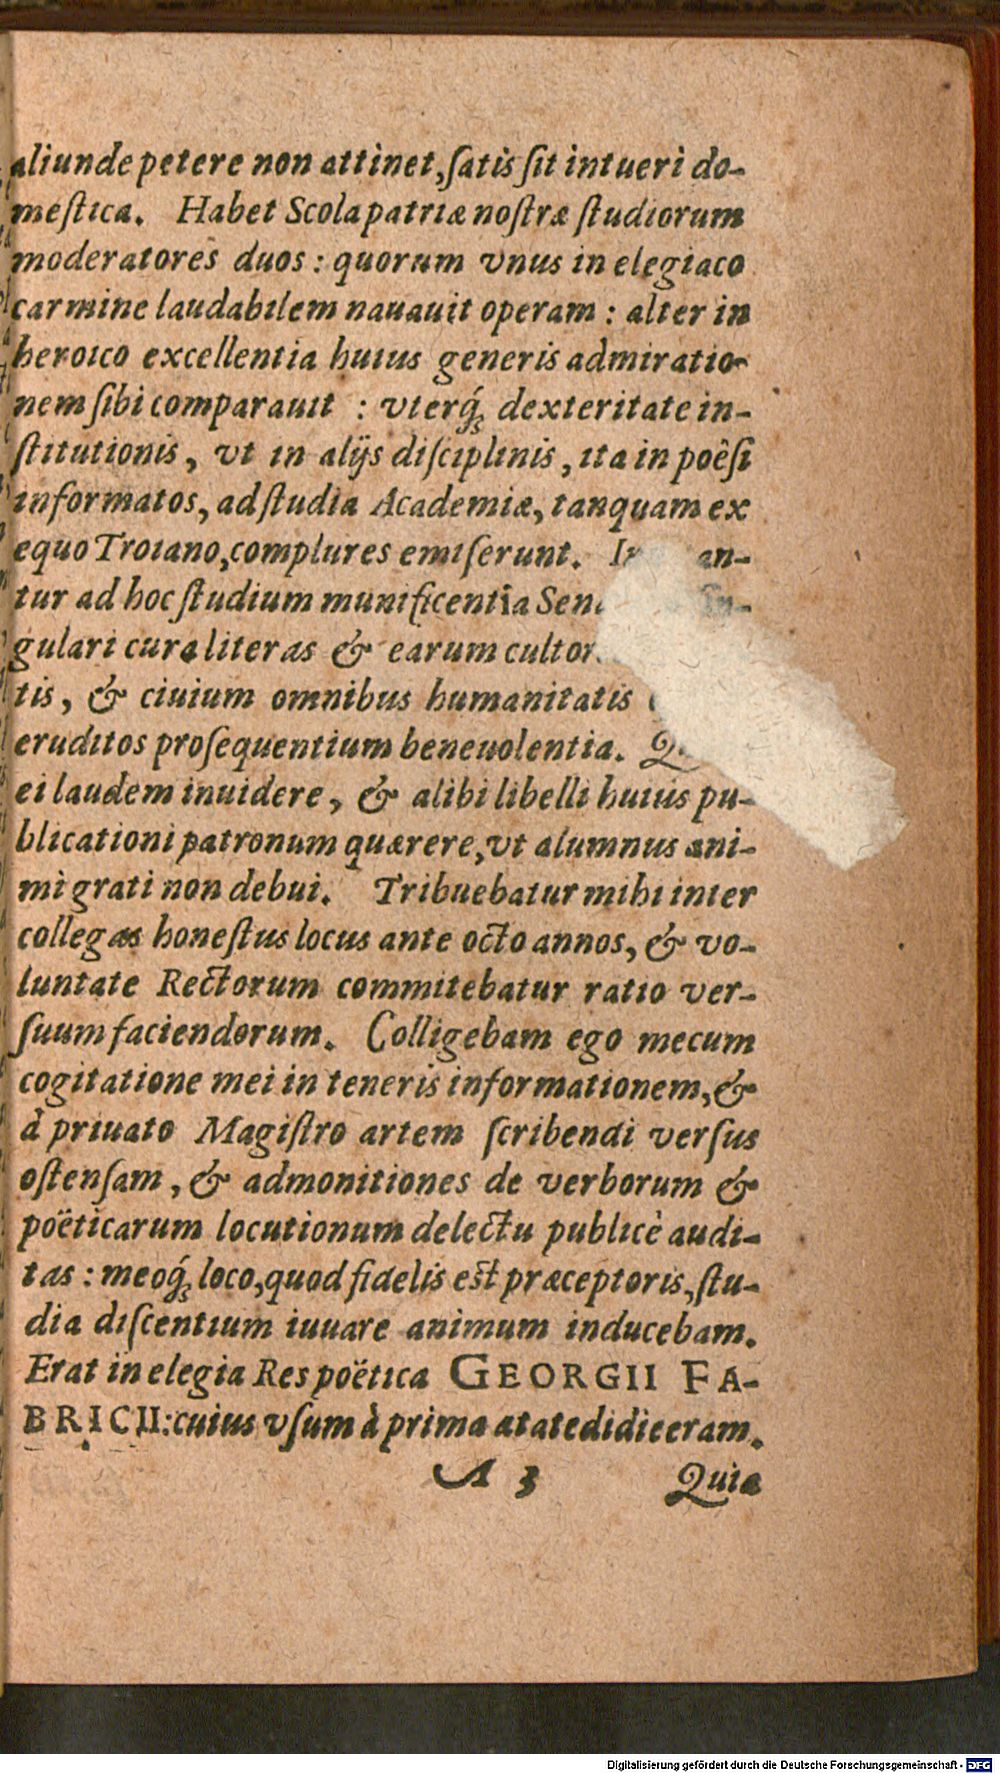 aliunde petere non attinet, ſatis ſit intueri do-
meſtica. Habet Scola patriæ noſtræ ſtudiorum
moderatores duos: quorum vnus in elegiaco
carmine laudabilem nauauit operam: alter in
heroico excellentia huius generis admiratio-
nem ſibi comparauit: vterq́; dexteritate in-
ſtitutionis, vt in alijs diſciplinis, ita in poêſi
informatos, ad ſtudia Academiæ, tanquam ex
equo Troiano, complures emiſerunt. an-
tur ad hoc ſtudium munificentia ſin-
gulari cura literas & earum
tis, & ciuium omnibus humanitatis
eruditos proſequentium beneuolentia.
ei laudem inuidere, & alibi libelli huius pu-
blicationi patronum quærere, vt alumnus ani-
mi grati non debui. Tribuebatur mihi inter
collegas honeſtus locus ante octo annos, & vo-
luntate Rectorum committebatur ratio ver-
ſuum faciendorum. Colligebam ego mecum
cogitatione mei in teneris informationem, &
à priuato Magiſtro artem ſcribendi verſus
oſtenſam, & admonitiones de verborum &
poëticarum locutionum delectu publicè audi-
tas: meoq́; loco, quod fidelis est præceptoris, ſtu-
dia diſcentium iuuare animum inducebam.
Erat in elegia Res poëtica GEORGII FA-
BRICII: cuius vſum à prima ætate didiceram.
A 3 Quia
Digitalisierung gefördert durch die Deutsche Forschungsgemeinschaft - DFG